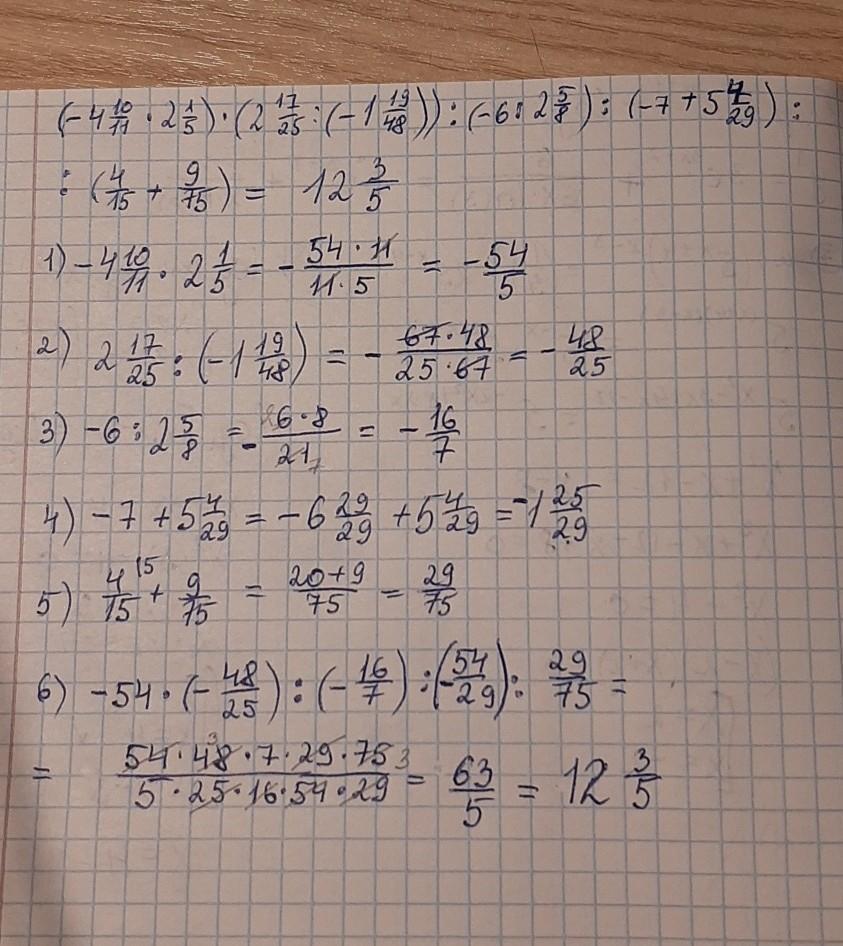 (-4 10/11 · 2 1/5) · (2 17/25 : (-1 19/48)) : (-6 : 2 5/8) : (-7 + 5 4/29) :
: (4/15 + 9/75) = 12 3/5
1) -4 10/11 · 2 1/5 = - 54 · 11/11 · 5 = - 54/5
2) 2 17/25 : (-1 19/48) = - 67 · 48/25 · 67 = - 48/25
3) -6 : 2 5/8 = - 6 · 8/21 7 = - 16/7
4) -7 + 5 4/29 = -6 29/29 + 5 4/29 = -1 25/29
5) 4/15 15 + 9/75 = 20+9/75 = 29/75
6) -54 · (- 48/25) : (- 16/7) : (- 54/29) : 29/75 =
= 54 · 48 3 · 7 · 29 · 75 3/5 · 25 · 16 · 54 · 29 = 63/5 = 12 3/5